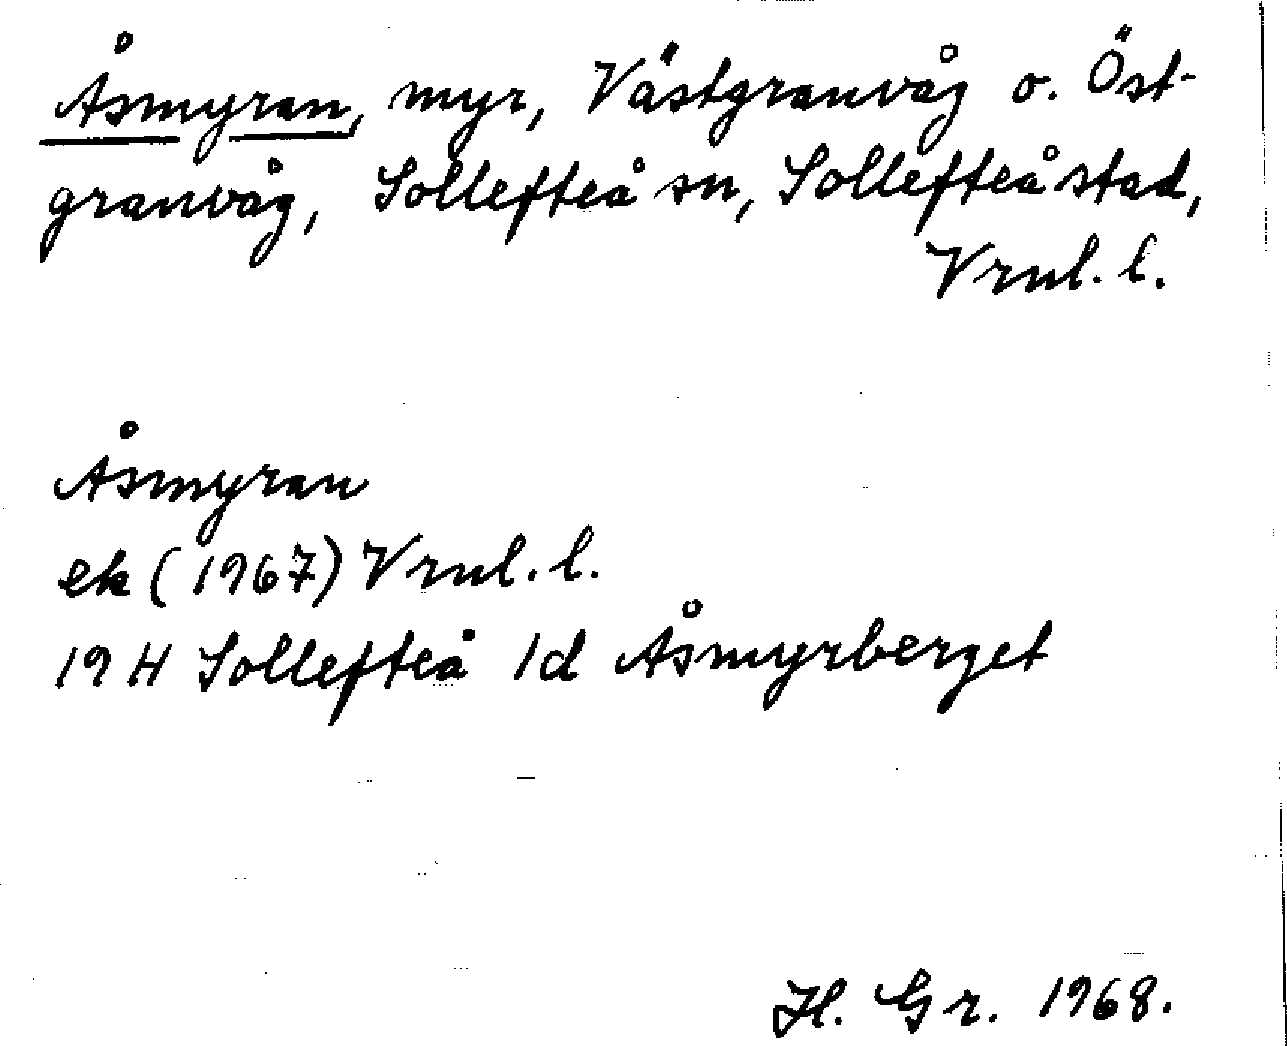 Åsmyran, myr, Västgranvåg o. Öst-
granvåg, Sollefteå sn, Sollefteå stad,
Vrnl. l.
Åsmyran
ek (1967) Vrnl. l.
19 H Sollefteå 1d Åsmyrberget
H. Gr. 1968.